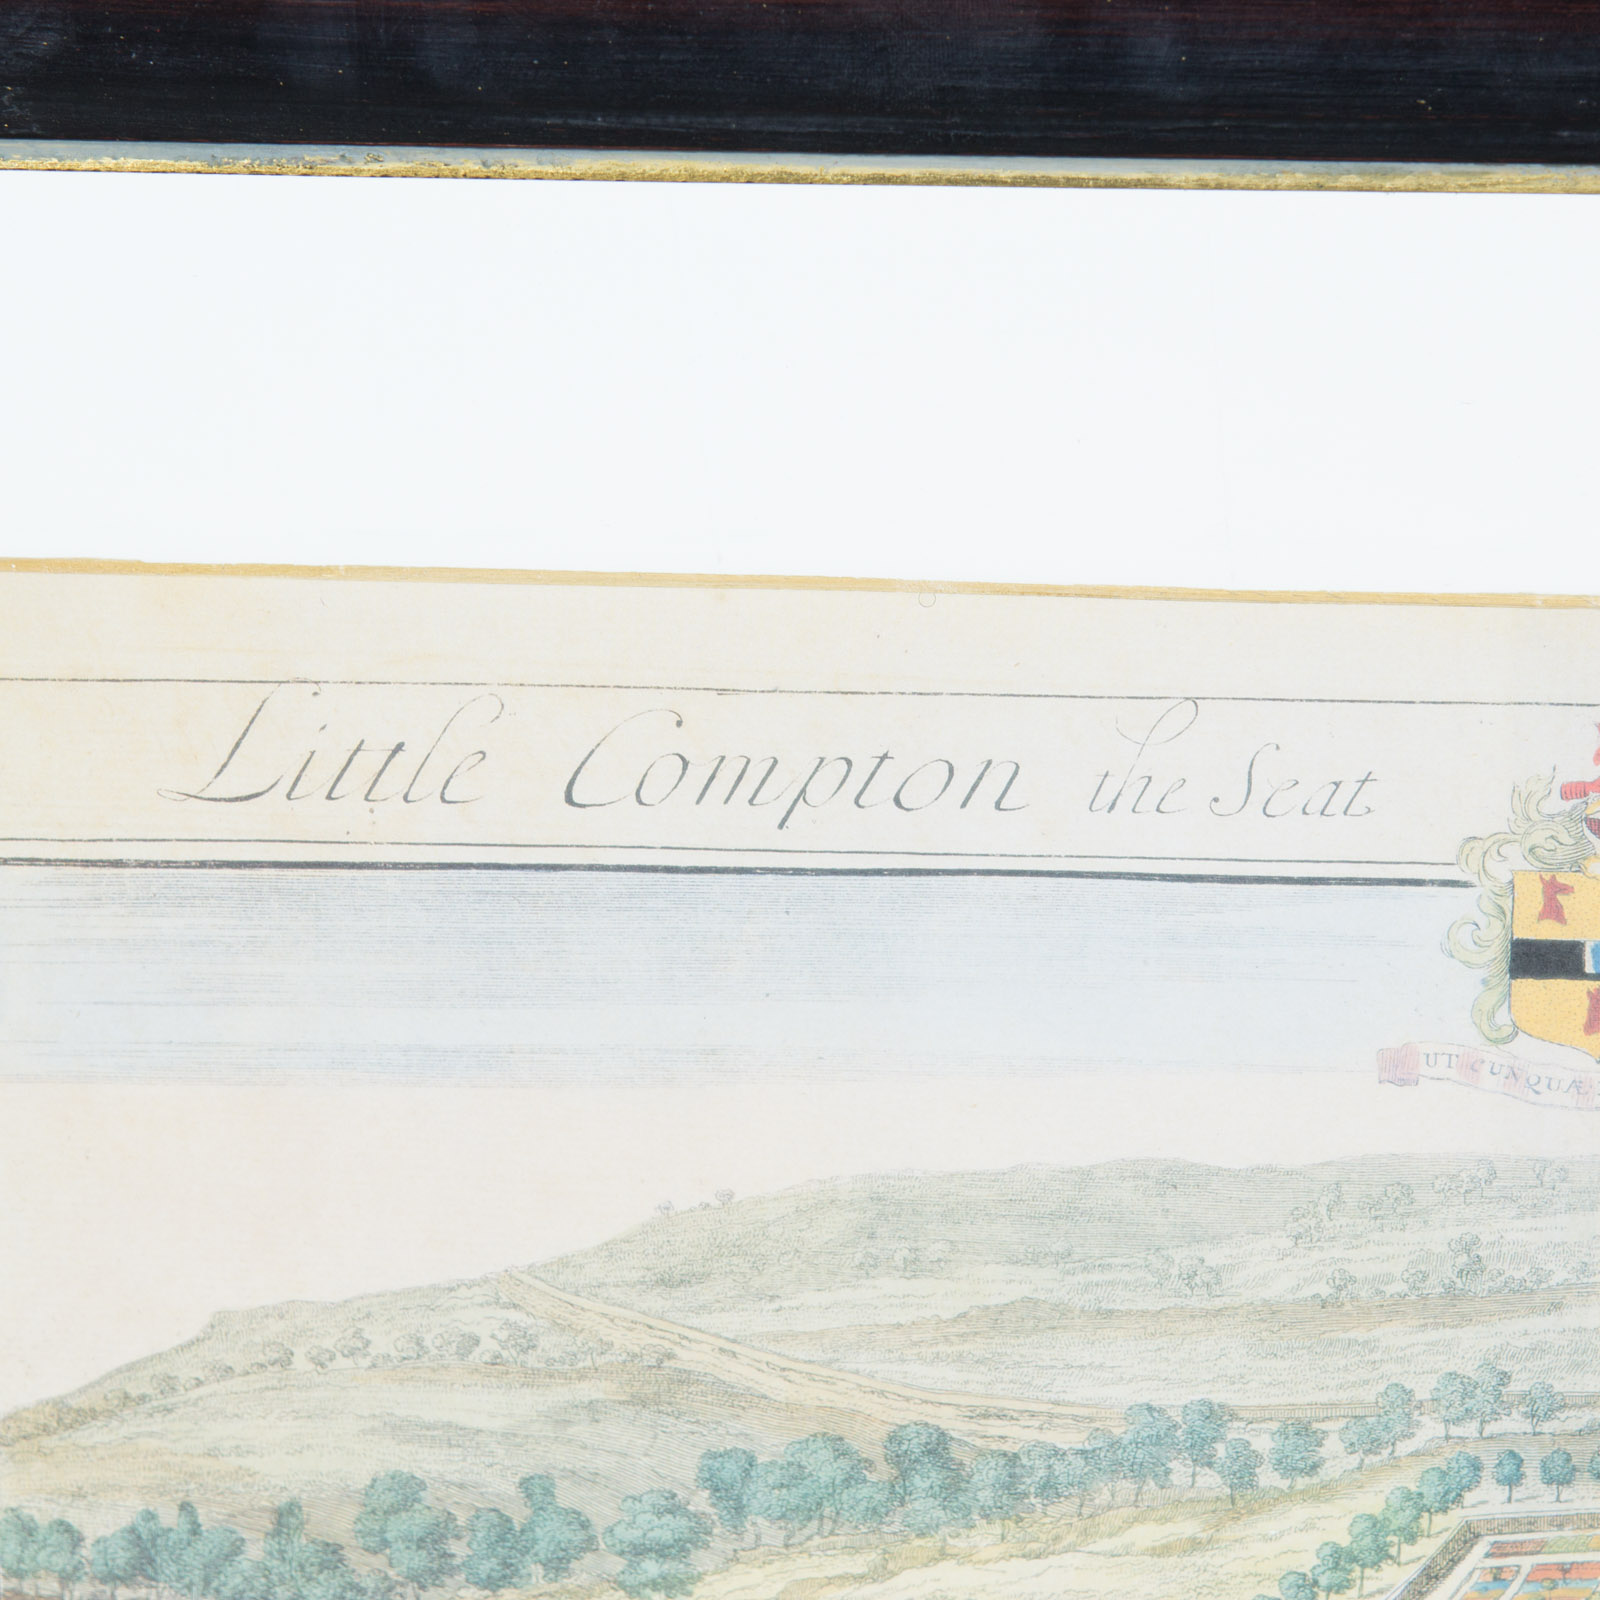 Little Compton the Seat
UT CUNQUÆ